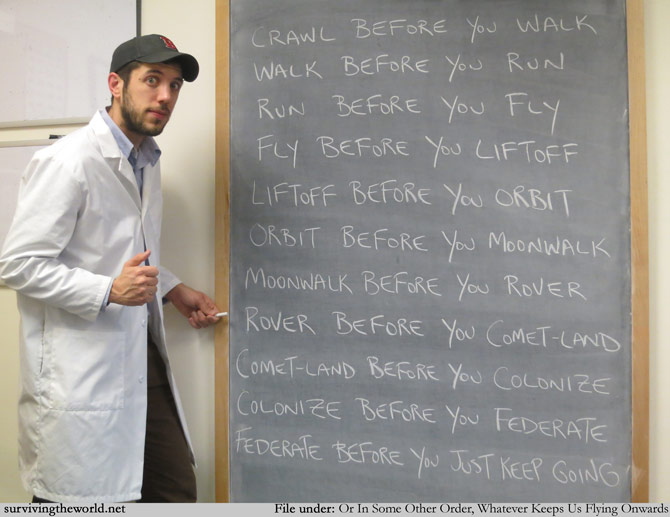 CRAWL BEFORE YOU WALK
WALK BEFORE YOU RUN
RUN BEFORE YOU FLY
FLY BEFORE YOU LIFTOFF
LIFTOFF BEFORE YOU ORBIT
ORBIT BEFORE YOU MOONWALK
MOONWALK BEFORE YOU ROVER
ROVER BEFORE YOU COMET-LAND
COMET-LAND BEFORE YOU COLONIZE
COLONIZE BEFORE YOU FEDERATE
FEDERATE BEFORE YOU JUST KEEP GOING
survivingtheworld.net File under: Or In Some Other Order, Whatever Keeps Us Flying Onwards